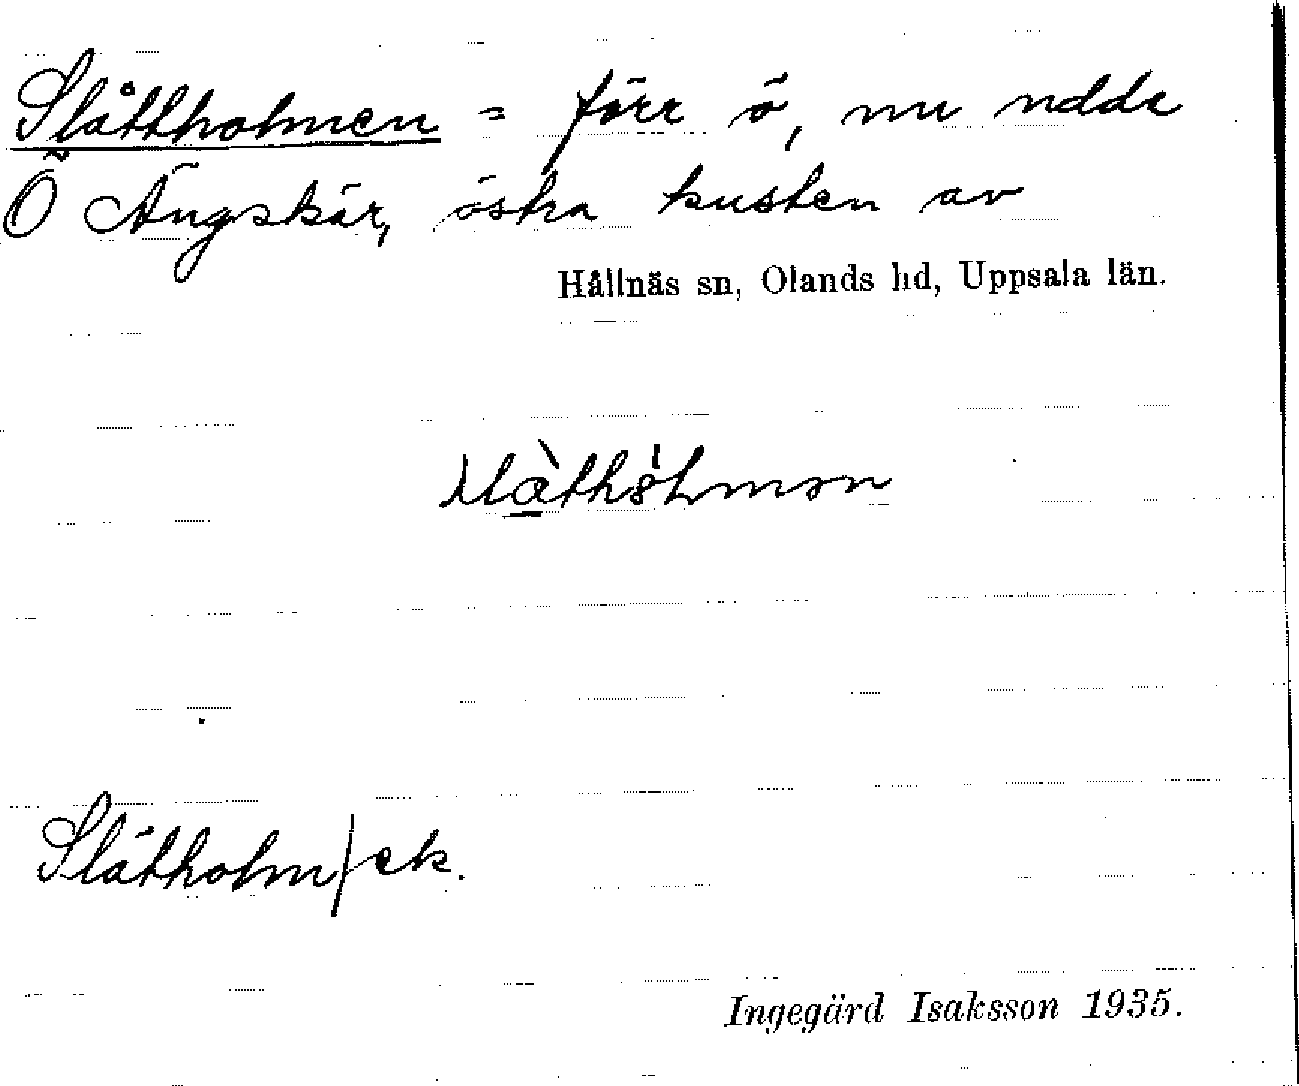 Slåttholmen = förr ö, nu udde
Ö Ängskär, östra kusten av
Hållnäs sn, Olands hd, Uppsala län.
Slåtholm/ek.
Ingegärd Isaksson 1935.